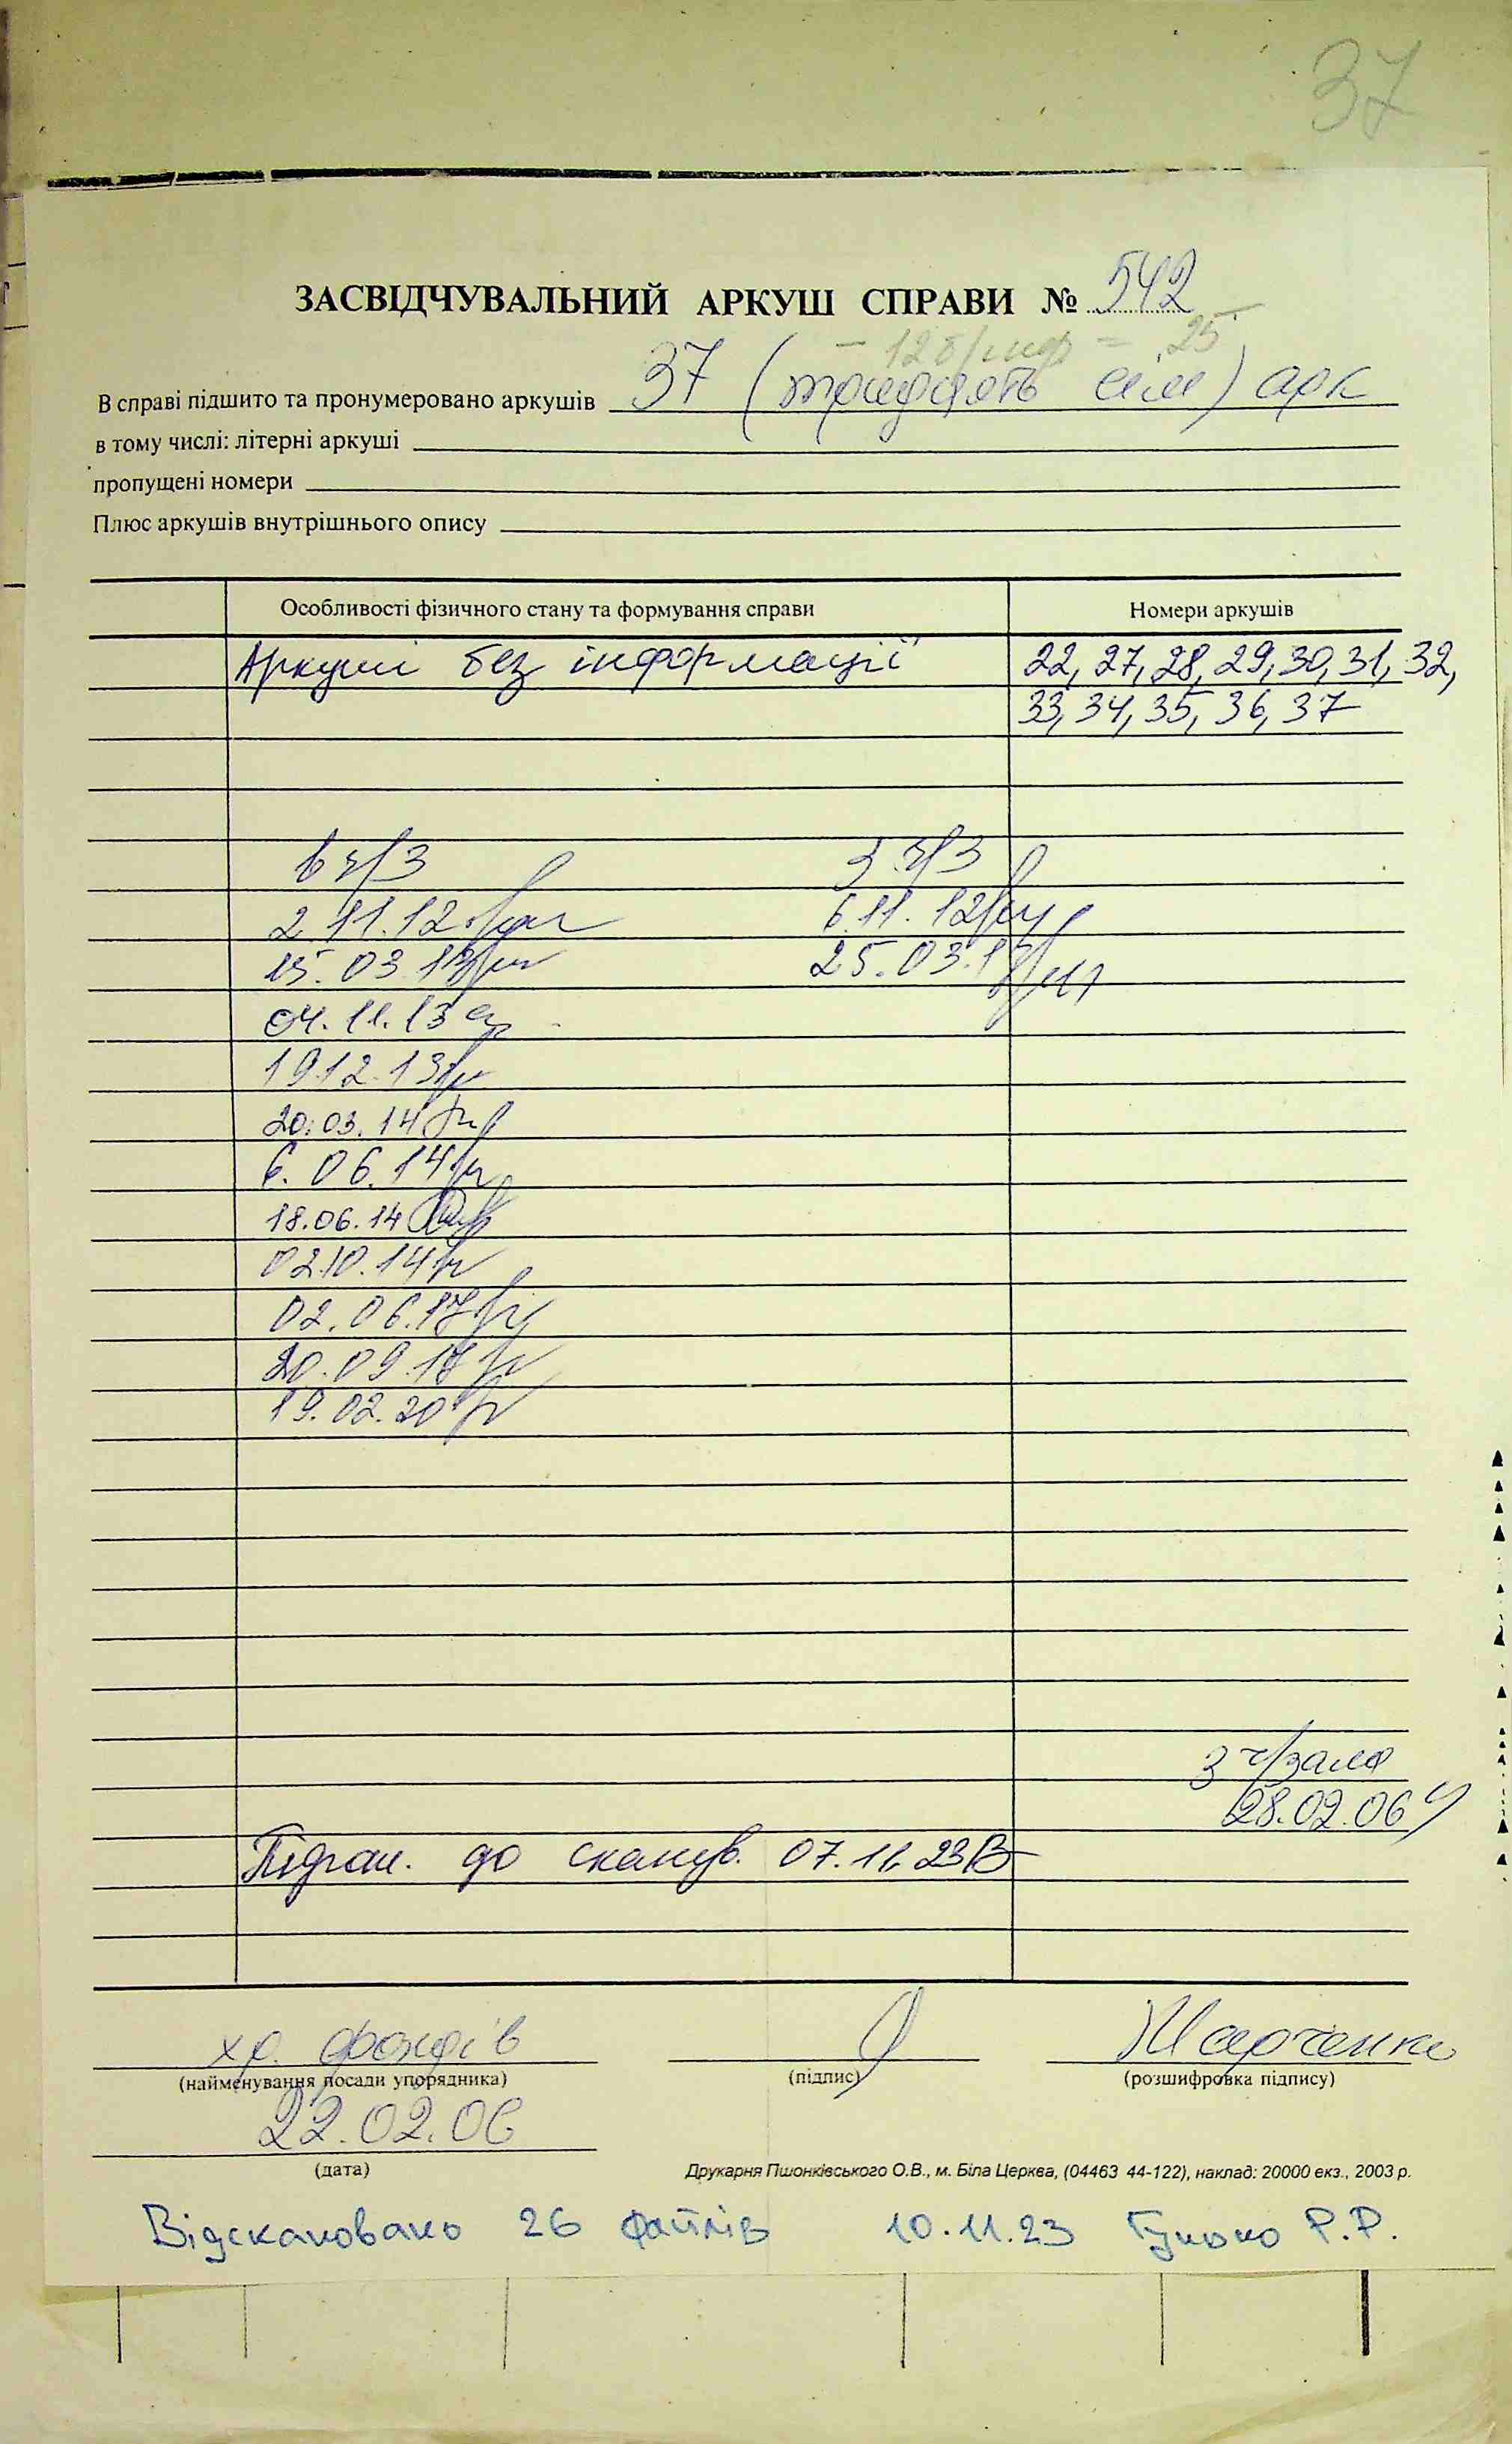 37
ЗАСВІДЧУВАЛЬНИЙ АРКУШ СПРАВИ № 542
– 12 б/инф = 25
В справі підшито та пронумеровано аркушів 37 (тридцять сім) арк
в тому числі: літерні аркуші
пропущені номери
Плюс аркушів внутрішнього опису
Особливості фізичного стану та формування справи Номери аркушів
Аркуші без інформації 22, 27, 28, 29, 30, 31, 32,
33, 34, 35, 36, 37
в ч/з з ч/з
2.11.12 6.11.12
15.03.13 25.03.13
04.11.13
19.12.13
20.03.14
6.06.14
18.06.14
02.10.14
02.06.17
20.09.17
19.02.20
з ч/зала
28.02.06
Підгот. до сканув. 07.11.23
хр. фондів
(найменування посади упорядника) (підпис) (розшифровка підпису)
22.02.06
(дата)
Друкарня Пшонківського О.В., м. Біла Церква, (04463 44-122), наклад: 20000 екз., 2003 р.
Відскановано 26 файлів 10.11.23 Гунько Р.Р.